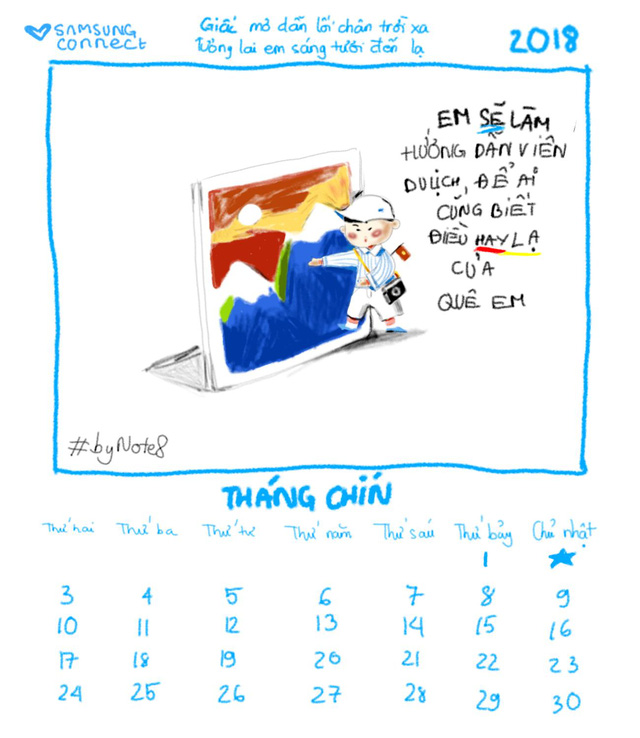 SAMSUNG
connect
Giấc mơ dẫn lối chân trời xa
Tương lai em sáng tươi đến lạ
2018
EM SẼ LÀM
HƯỚNG DẪN VIÊN
DU LỊCH, ĐỂ AI
CŨNG BIẾT
ĐIỀU HAY LẠ
CỦA
QUÊ EM
#byNote8
THÁNG CHÍN
Thứ hai Thứ ba Thứ tư Thứ năm Thứ sáu Thứ bảy Chủ nhật
1
3 4 5 6 7 8 9
10 11 12 13 14 15 16
17 18 19 20 21 22 23
24 25 26 27 28 29 30